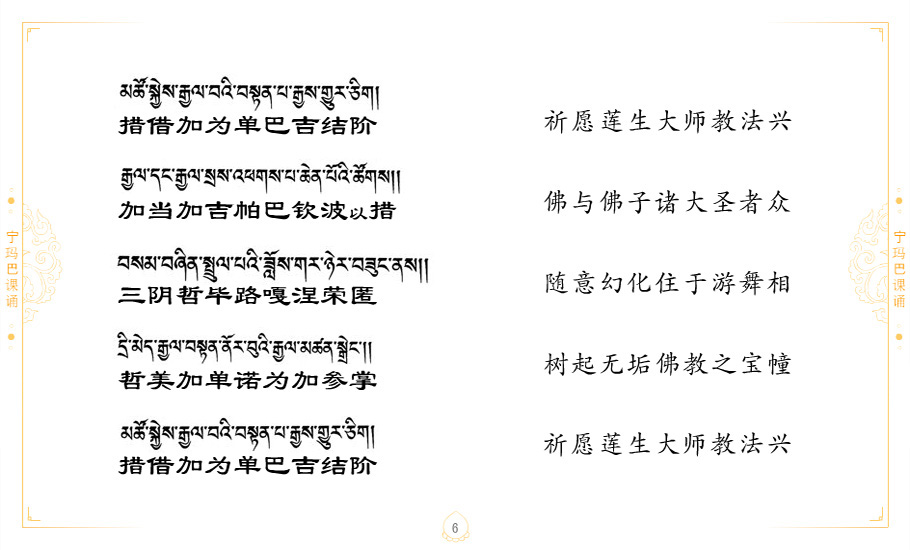 མཚོ་སྐྱེས་རྒྱལ་བའི་བསྟན་པ་རྒྱས་གྱུར་ཅིག།
措借加为单巴吉结阶
祈愿莲生大师教法兴
རྒྱལ་དང་རྒྱལ་སྲས་འཕགས་པ་ཆེན་པོའི་ཚོགས།།
加当加吉帕巴钦波以措
佛与佛子诸大圣者众
བསམ་བཞིན་སྤྲུལ་པའི་ཟློས་གར་ཉེར་བཟུང་ནས།།
三阴哲毕路嘎涅荣匿
随意幻化住于游舞相
དྲི་མེད་རྒྱལ་བསྟན་ནོར་བུའི་རྒྱལ་མཚན་སྒྲེང་།།
哲美加单诺为加参掌
树起无垢佛教之宝幢
མཚོ་སྐྱེས་རྒྱལ་བའི་བསྟན་པ་རྒྱས་གྱུར་ཅིག།
措借加为单巴吉结阶
祈愿莲生大师教法兴
宁玛巴课诵
宁玛巴课诵
6